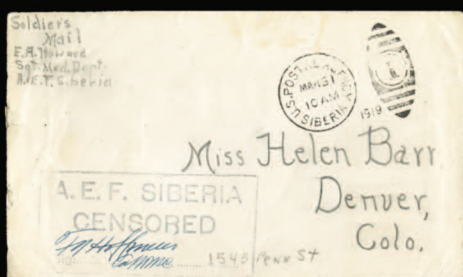 Soldiers
Mail
E.A. Howard
Sgt. Med. Dept.
A.E.F. Siberia
U.S. POSTAL AGENCY
MAR 31
10 AM
SIBERIA
1919
Miss Helen Barr
Denver,
Colo.
A.E.F. SIBERIA
CENSORED
1545 Penn St